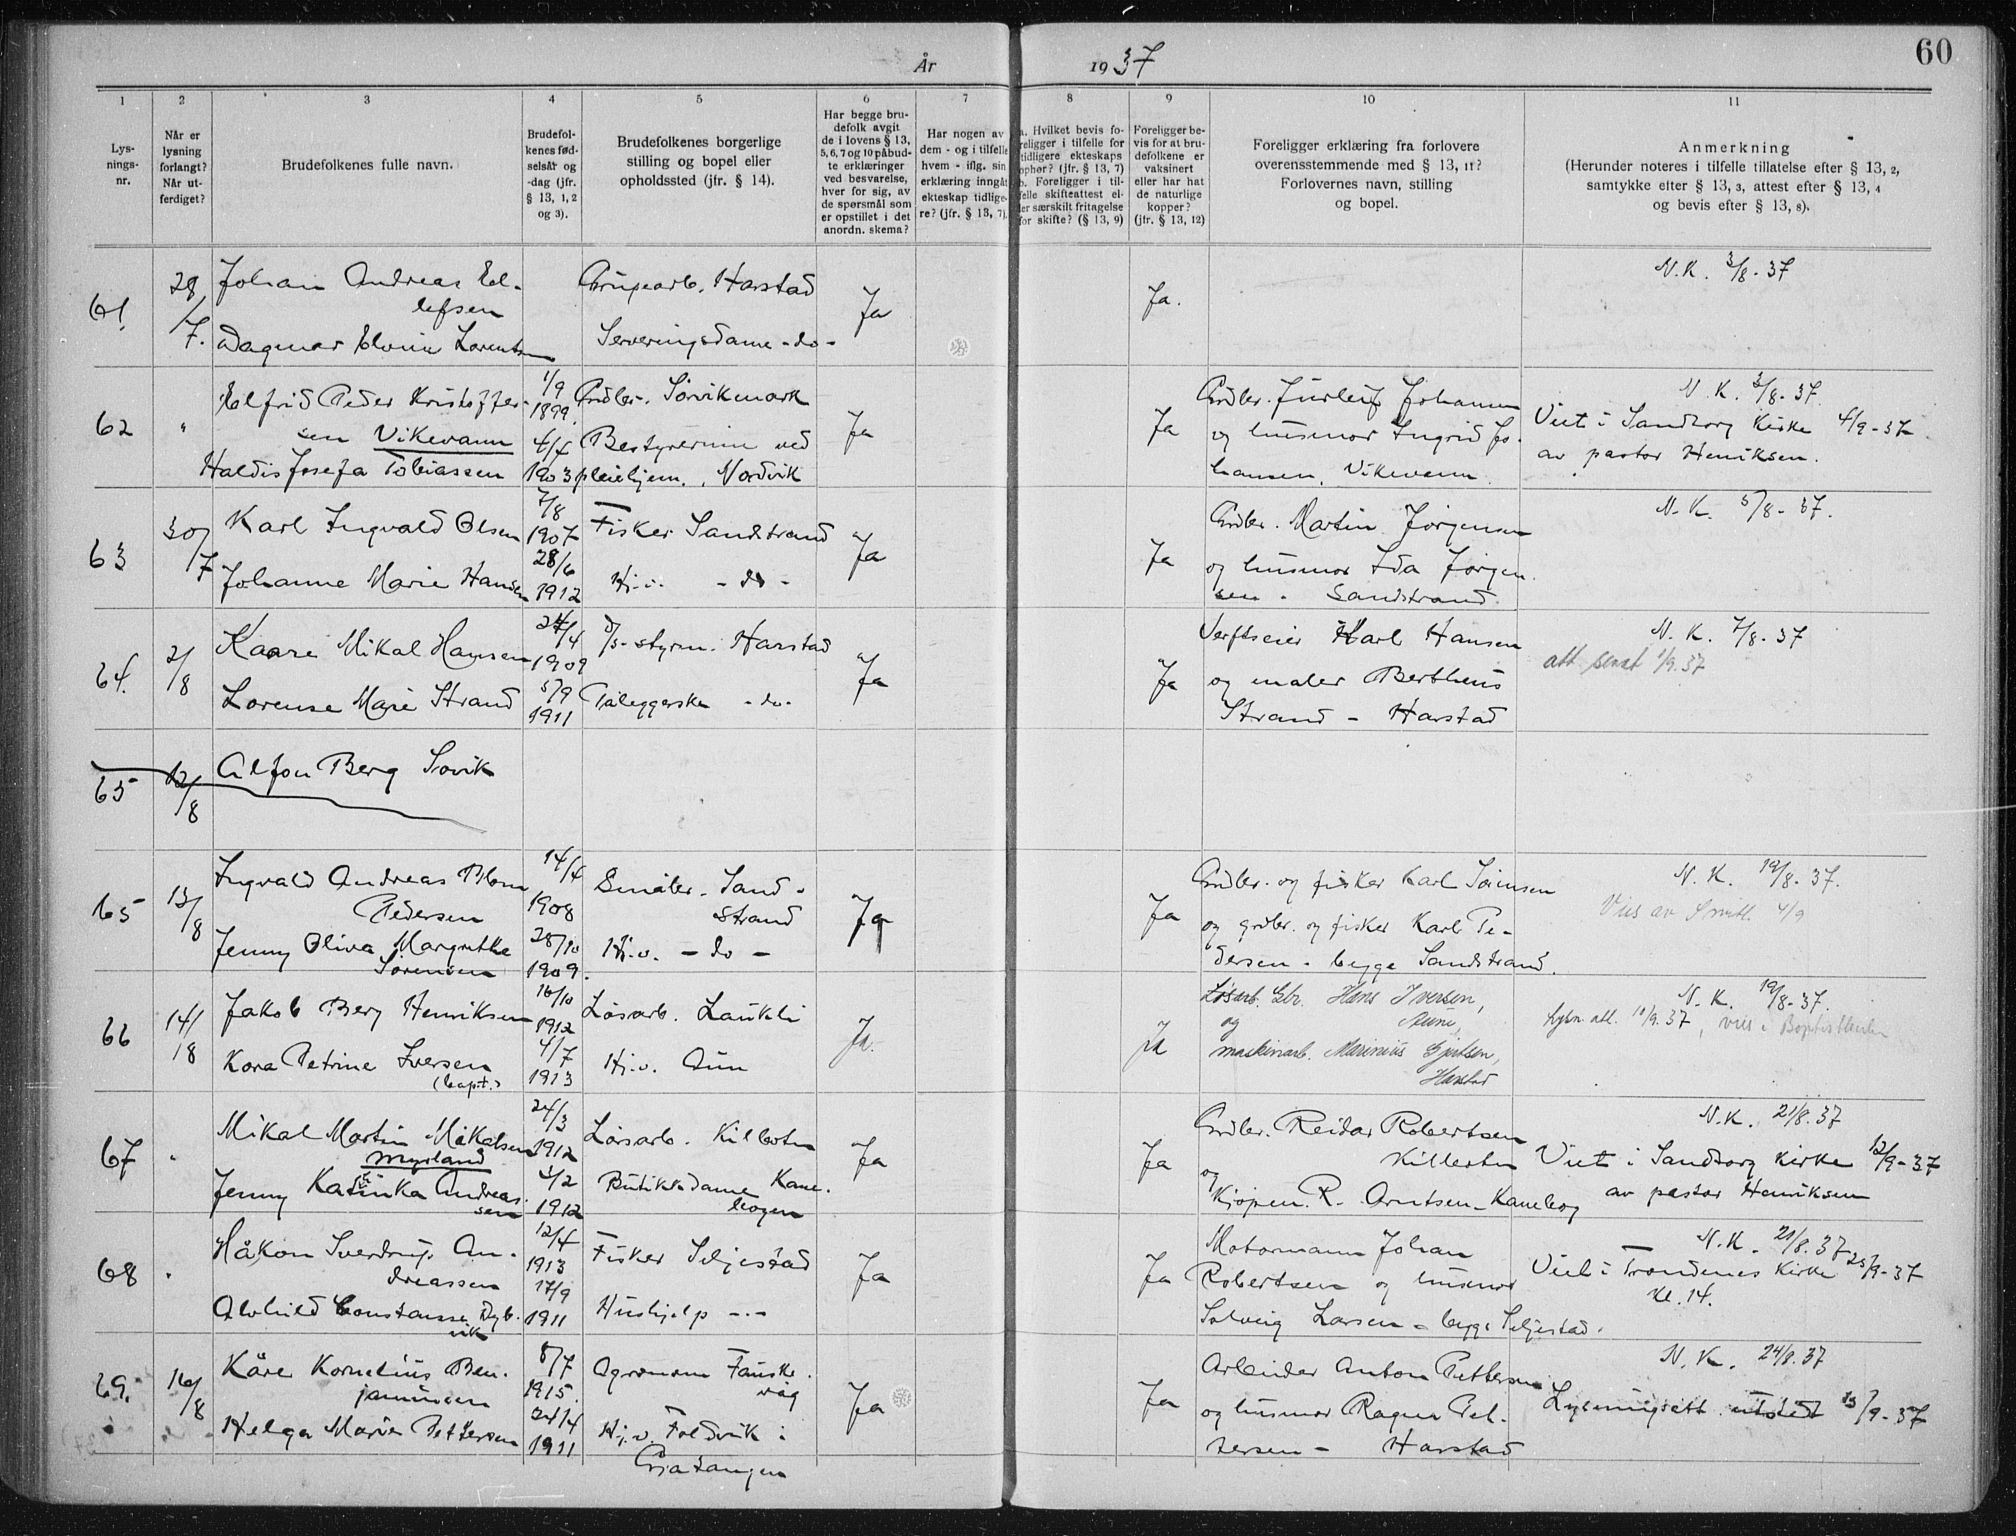 60
År 1937
1 2 3 4 5 6 7 8 9 10 11
Lys-
nings-
nr.
Når er
lysning
forlangt?
Når ut-
ferdiget?
Brudefolkenes fulle navn.
Brudefol-
kenes fød-
selsår og
-dag (jfr.
§ 13, 1, 2
og 3).
Brudefolkenes borgerlige
stilling og bopel eller
opholdssted (jfr. § 14).
Har begge bru-
defolk avgit
de i lovens § 13,
5, 6, 7 og 10 påbud-
te erklæringer
ved besvarelse,
hver for sig, av
de spørsmål som
er opstillet i det
anordn. skema?
Har nogen av
dem - og i tilfelle
hvem - iflg. sin
erklæring inngåt
ekteskap tidlige-
re? (jfr. § 13, 7).
a. Hvilket bevis fo-
religger i tilfelle for
tidligere ekteskaps
ophør? (jfr. § 13, 7)
b. Foreligger i til-
felle skifteattest el-
ler særskilt fritagelse
for skifte? (§ 13, 9)
Foreligger be-
vis for at bru-
defolkene er
vaksinert
eller har hat
de naturlige
kopper?
(jfr. § 13, 12)
Foreligger erklæring fra forlovere
overensstemmende med § 13, 11?
Forlovernes navn, stilling
og bopel.
Anmerkning
(Herunder noteres i tilfelle tillatelse efter § 13, 2,
samtykke efter § 13, 3, attest efter § 13, 4
og bevis efter § 13, 8).
61. 28/7. Johan Andreas El-
lefsen
Grupearb. Harstad
Ja
Ja.
N.K. 3/8-37
Dagmar Elvine Lorentsen
Serveringsdame -do-
62 " Elfrid Peder Kristoffer-
sen Vikevann
1/9
1899
Grdbr. Sørvikmark
Ja
Ja
Grdbr. Johansen
og husmor Ingrid Jo-
hansen, Vikevann
N.K. 3/8-37.
Viet i Sandtorg Kirke 4/9-37
av pastor Henriksen.
Haldis Josefa Tobiassen
1903
Bestyrerinne ved
pleiehjem, Nordvik
63 30/7 Karl Ingvald Olsen
7/8
1907
Fisker Sandstrand
Ja
Ja
Grdbr. Martin Jørgensen
og husmor Ida Jørgen-
sen - Sandstrand
N.K. 5/8-37.
Johanne Marie Hansen
28/6
1912
Hj.v. -do-
64. 2/8 Kaare Mikal Hansen
24/4
1909
styrm. Harstad
Ja
Ja
Verftseier Karl Hansen
og maler Bertheus
Strand - Harstad
N.K. 7/8-37
att sendt 1/9.37
Lorense Marie Strand
5/9
1911
Påleggerske -do-
65 12/8 Alfon Berg Sovik
65 13/8 Ingvald Andreas Blom
Pedersen
14/4
1908
Småbr. Sand-
strand
Ja
Ja
Grdbr. og fisker Karl Sørensen
og grdbr. og fisker Karl Pe-
dersen - begge Sandstrand.
N.K. 19/8-37.
Vies av Smitt. 4/9
Jenny Oliva Margrethe
Sørensen
28/10
1909.
Hj.v. -do-
66 14/8 Jakob Berg Henriksen
16/10
1912
Løsarb. Laukli
Ja.
Ja
Løsarb. Gbr. Hans Iversen,
og Aune,
maskinarb. Marinius Gjertsen,
Harstad
N.K. 19/8-37.
Lysn. att. 10/9.37, vies i
Kora Petrine Iversen
(bapt.)
4/7
1913
Hj.v. Aun
67 " Mikal Martin Mikalsen
Myrland
24/3
1912
Løsarb. Kilbotn
Ja
Ja
Grdbr. Reidar Robertsen
Killbotn
og
Kjøpm. R. Arntsen - Kanebog
N.K. 21/8.37
Viet i Sandtorg kirke 12/9-37
av pastor Henriksen
Jenny Katinka Andreas-
sen
1912
Butikkdame Kane-
bogen
68 " Håkon Sverdrup An-
dreassen
12/4
1913
Fisker Seljestad
Ja
Ja
Motormann Johan
Robertsen og husmor
Solveig Larsen - begge Seljestad.
N.K. 21/8.37
Viet i Trondenes Kirke 25/9-37
kl. 14.
Alvhild Constanse Dyb-
vik
17/9
1911
Hushjelp -"-
69. 16/8 Kåre Kornelius Ben-
jaminsen
8/7
1915.
Agronom Fauske-
våg
Ja
Ja
Arbeider Anton Pettersen
og husmor Ragna Pet-
tersen - Harstad
N.K. 24/8.37
Lysningsatt. utstedt 13/9-37
Helga Marie Pettersen
24/4
1911
Hj.v. Foldvik i
Gratangen